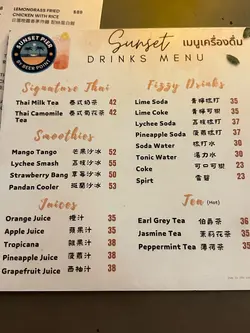 LEMONGRASS FRIED
CHICKEN WITH RICE
SUNSET PIER
BY BEER POINT
Sunset เมนูเครื่องดื่ม
DRINKS MENU
Signature Thai
Thai Milk Tea 泰式奶茶 42
Thai Camomile Tea 泰式菊花茶 52
Smoothies
Mango Tango 芒果沙冰 52
Lychee Smash 荔枝沙冰 55
Strawberry Bang 草莓沙冰 50
Pandan Cooler 斑蘭沙冰 53
Juices
Orange Juice 橙汁 35
Apple Juice 蘋果汁 35
Tropicana 雜果汁 38
Pineapple Juice 菠蘿汁 38
Grapefruit Juice 西柚汁 38
Fizzy Drinks
Lime Soda 青檸梳打 35
Lime Coke 青檸可樂 35
Lychee Soda 荔枝梳打 37
Pineapple Soda 菠蘿梳打 36
Soda Water 梳打水 30
Tonic Water 湯力水 30
Coke 可口可樂 23
Spirt 雪碧 23
Tea (Hot)
Earl Grey Tea 伯爵茶 36
Jasmine Tea 茉莉花茶 35
Peppermint Tea 薄荷茶 35